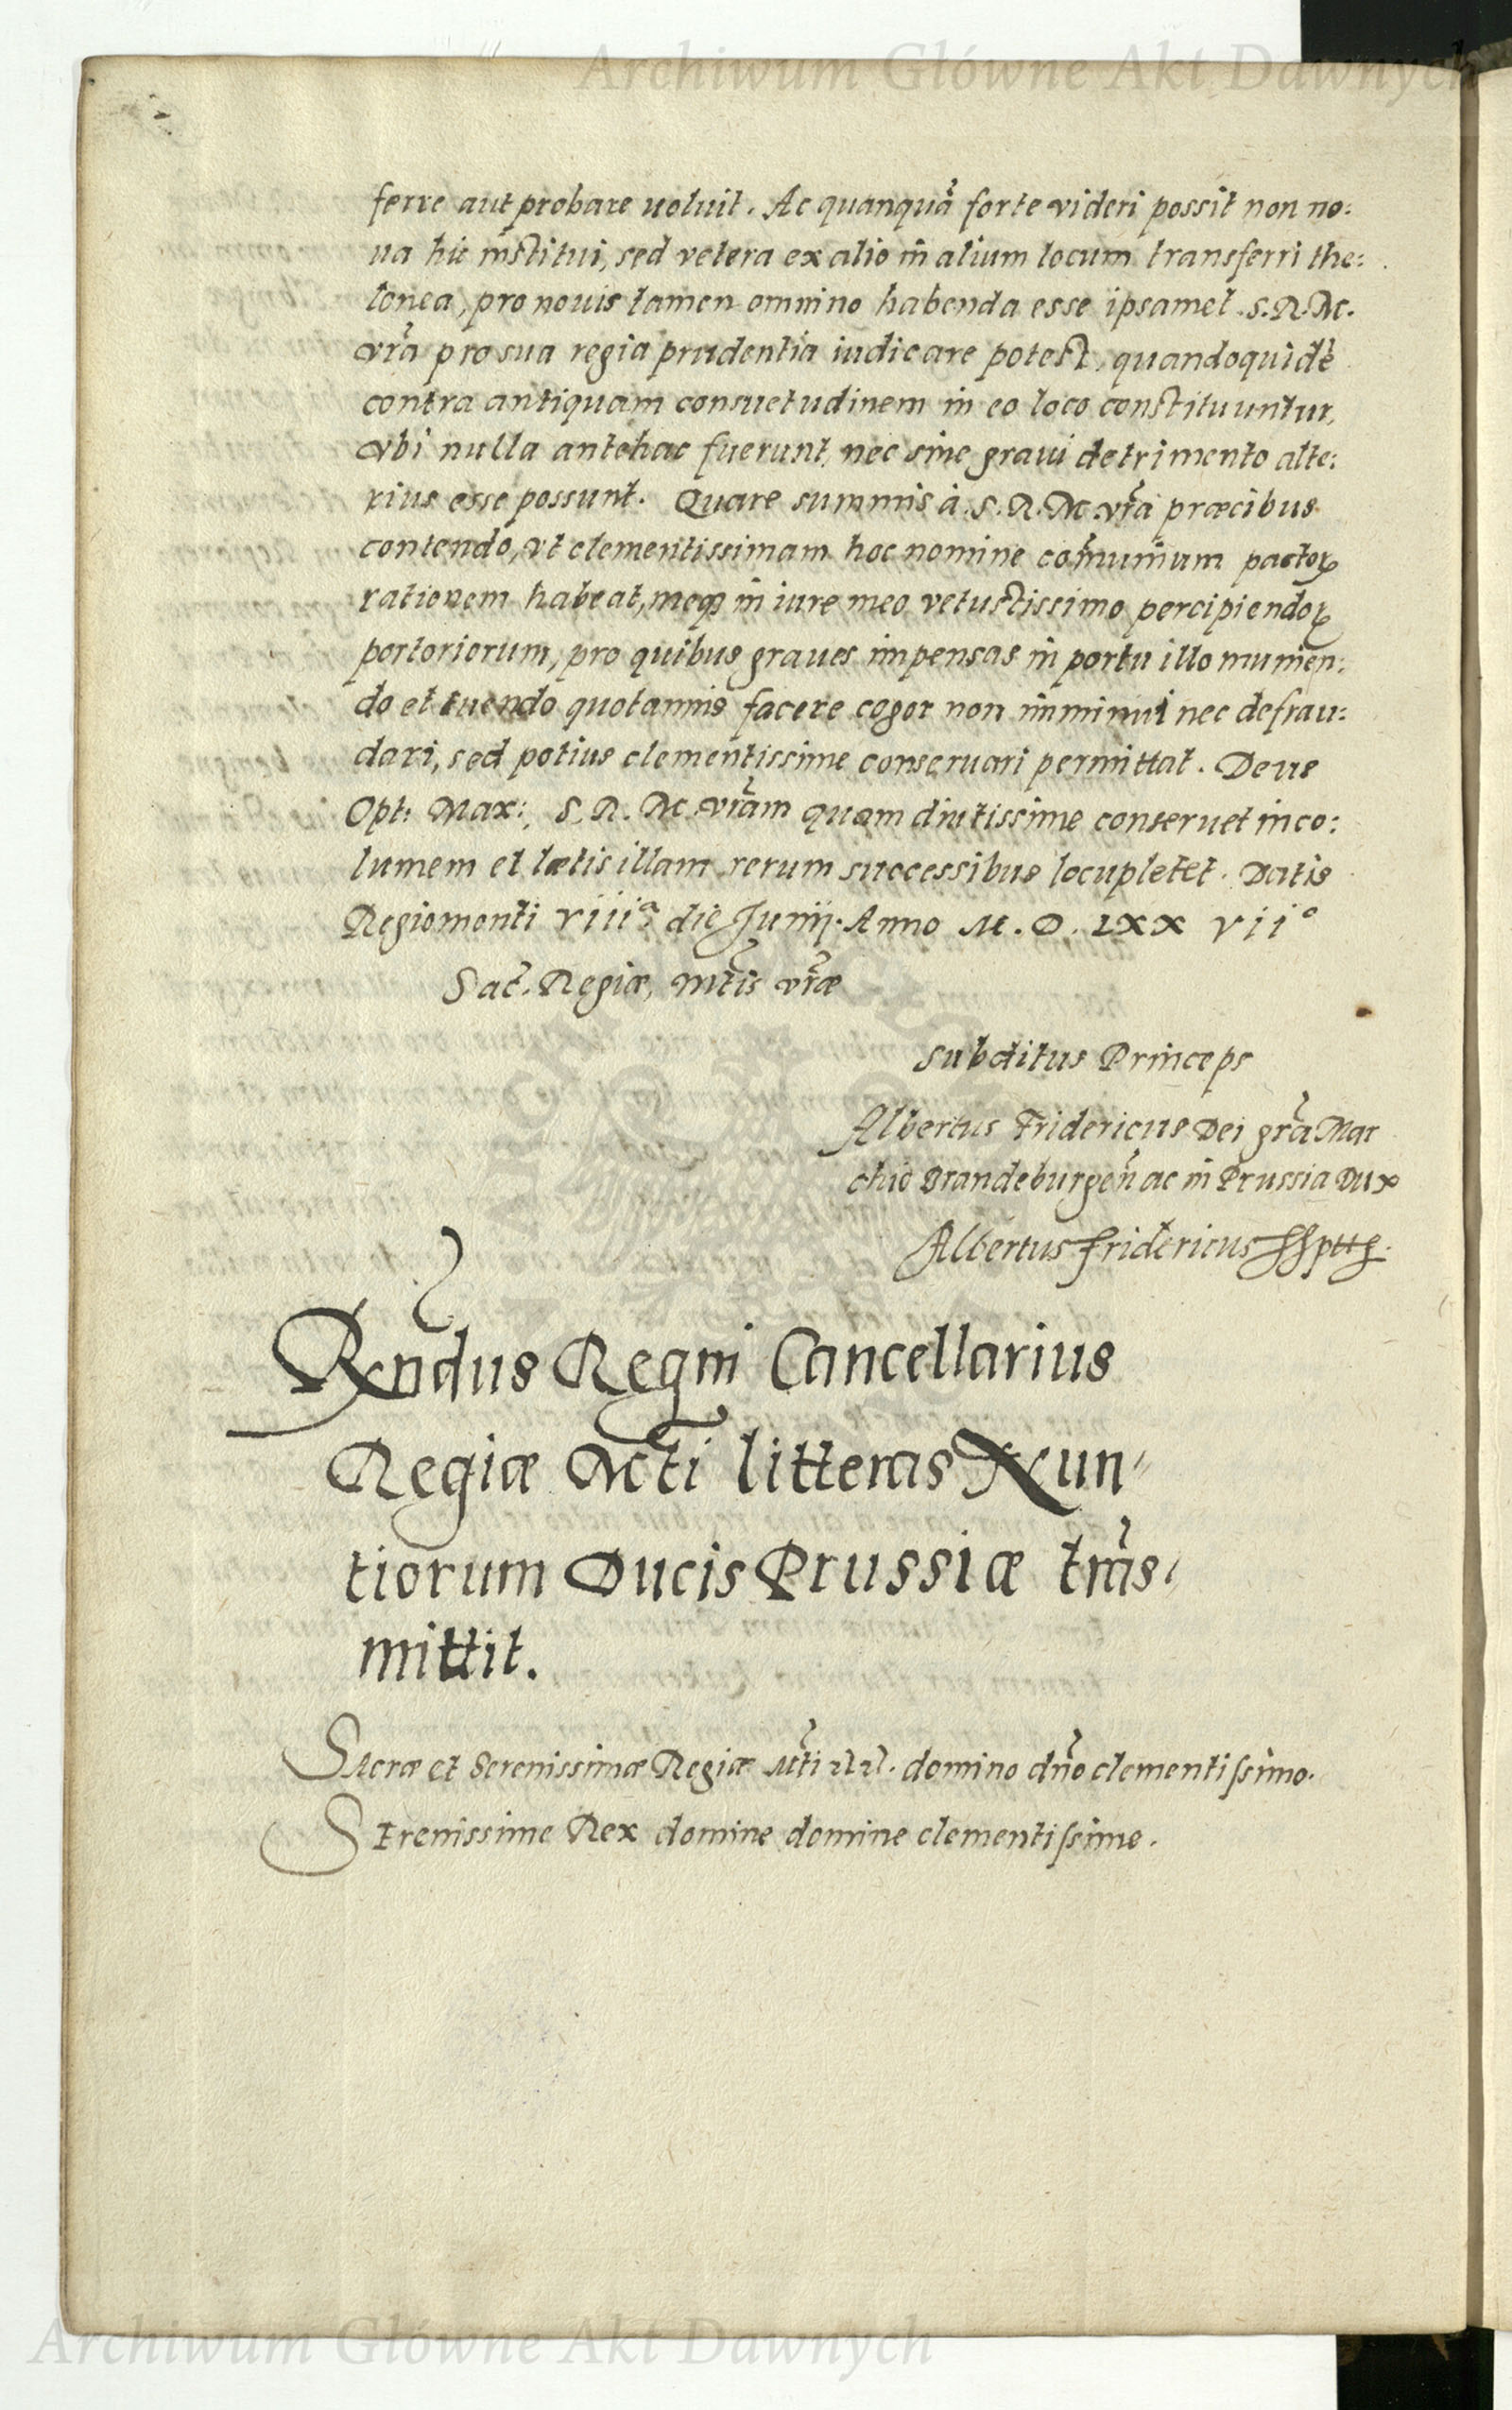 Archiwum Główne Akt Dawnych
ferre aut probare uoluit. Ac quanquã forte videri possit non no:
ua hic institui, sed vetera ex alio in alium locum transferri the:
lonea, pro nouis tamen omnino habenda esse ipsamet .S.R.M.
vrã pro sua regia prudentia iudicare potest, quandoquidẽ
contra antiquam consuetudinem in eo loco constituuntur,
vbi nulla antehac fuerunt, nec sine graui detrimento alte:
rius esse possunt. Quare summis à .S.R.M. vrã præcibus
contendo, vt clementissimam hoc nomine com̃unium pactoꝝ
rationem habeat, meqꝫ in iure meo vetustissimo percipiendoꝝ
portoriorum, pro quibus graues impensas in portu illo munien:
do et tuendo quotannis facere cogor non imminui nec defrau:
dari, sed potius clementissime conseruari permittat. Deus
Opt: Max: S.R.M. vrãm quam diutissime conseruet inco:
lumem et lætis illam rerum successibus locupletet. Datis
Regiomonti VIIIa die Junij. Anno M.D.LXXVIIo
Sac̃. Regiæ, Mtis vr̃æ
Subditus Princeps
Albertus Fridericus Dei grã Mar
chio Brandeburgeñ ac in Prussia Dux
Albertus Fridericus
Rx̃ndus Regni Cancellarius
Regiæ Mti litteras Nun〃
tiorum Ducis Prussiæ trãs〃
mittit.
Sacræ et Serenissimæ Regiæ Mti domino dño clementissimo.
Serenissime Rex domine domine clementissime.
Archiwum Główne Akt Dawnych